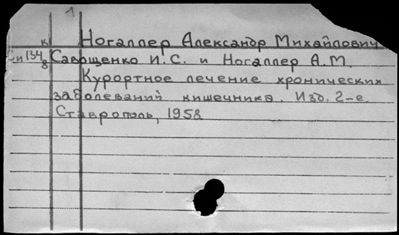 1
к Ногаллер Александр Михайлович
134 Саващенко И.С. и Ногаллер А.М.
8 Курортное лечение хронических
заболеваний кишечника. Изд. 2-е.
Ставрополь, 1958